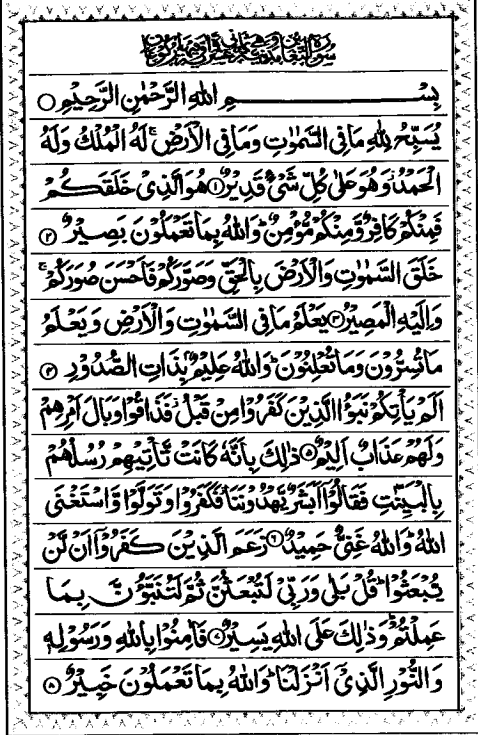 سورة التغابن مدنية وهي ثماني عشرة اية وفيها ركوعان
بِسْمِ اللهِ الرَّحْمٰنِ الرَّحِيْمِ ○
يُسَبِّحُ لِلّٰهِ مَا فِى السَّمٰوٰتِ وَمَا فِى الْاَرْضِ ۚ لَهُ الْمُلْكُ وَلَهُ
الْحَمْدُ ؗ وَهُوَ عَلٰى كُلِّ شَىْءٍ قَدِيْرٌ ۱ هُوَ الَّذِىْ خَلَقَكُمْ
فَمِنْكُمْ كَافِرٌ وَّمِنْكُمْ مُّؤْمِنٌ ؕ وَاللهُ بِمَا تَعْمَلُوْنَ بَصِيْرٌ ۲
خَلَقَ السَّمٰوٰتِ وَالْاَرْضَ بِالْحَقِّ وَصَوَّرَكُمْ فَاَحْسَنَ صُوَرَكُمْ ۚ
وَاِلَيْهِ الْمَصِيْرُ ۳ يَعْلَمُ مَا فِى السَّمٰوٰتِ وَالْاَرْضِ وَيَعْلَمُ
مَا تُسِرُّوْنَ وَمَا تُعْلِنُوْنَ ؕ وَاللهُ عَلِيْمٌۢ بِذَاتِ الصُّدُوْرِ ۴
اَلَمْ يَاْتِكُمْ نَبَؤُا الَّذِيْنَ كَفَرُوْا مِنْ قَبْلُ ؗ فَذَاقُوْا وَبَالَ اَمْرِهِمْ
وَلَهُمْ عَذَابٌ اَلِيْمٌ ۵ ذٰلِكَ بِاَنَّهٗ كَانَتْ تَّاْتِيْهِمْ رُسُلُهُمْ
بِالْبَيِّنٰتِ فَقَالُوْٓا اَبَشَرٌ يَّهْدُوْنَنَا ؗ فَكَفَرُوْا وَتَوَلَّوْا وَّاسْتَغْنَى
اللهُ ؕ وَاللهُ غَنِىٌّ حَمِيْدٌ ۶ زَعَمَ الَّذِيْنَ كَفَرُوْٓا اَنْ لَّنْ
يُّبْعَثُوْا ؕ قُلْ بَلٰى وَرَبِّىْ لَتُبْعَثُنَّ ثُمَّ لَتُنَبَّؤُنَّ بِمَا
عَمِلْتُمْ ؕ وَذٰلِكَ عَلَى اللهِ يَسِيْرٌ ۷ فَاٰمِنُوْا بِاللهِ وَرَسُوْلِهٖ
وَالنُّوْرِ الَّذِىْٓ اَنْزَلْنَا ؕ وَاللهُ بِمَا تَعْمَلُوْنَ خَبِيْرٌ ۸